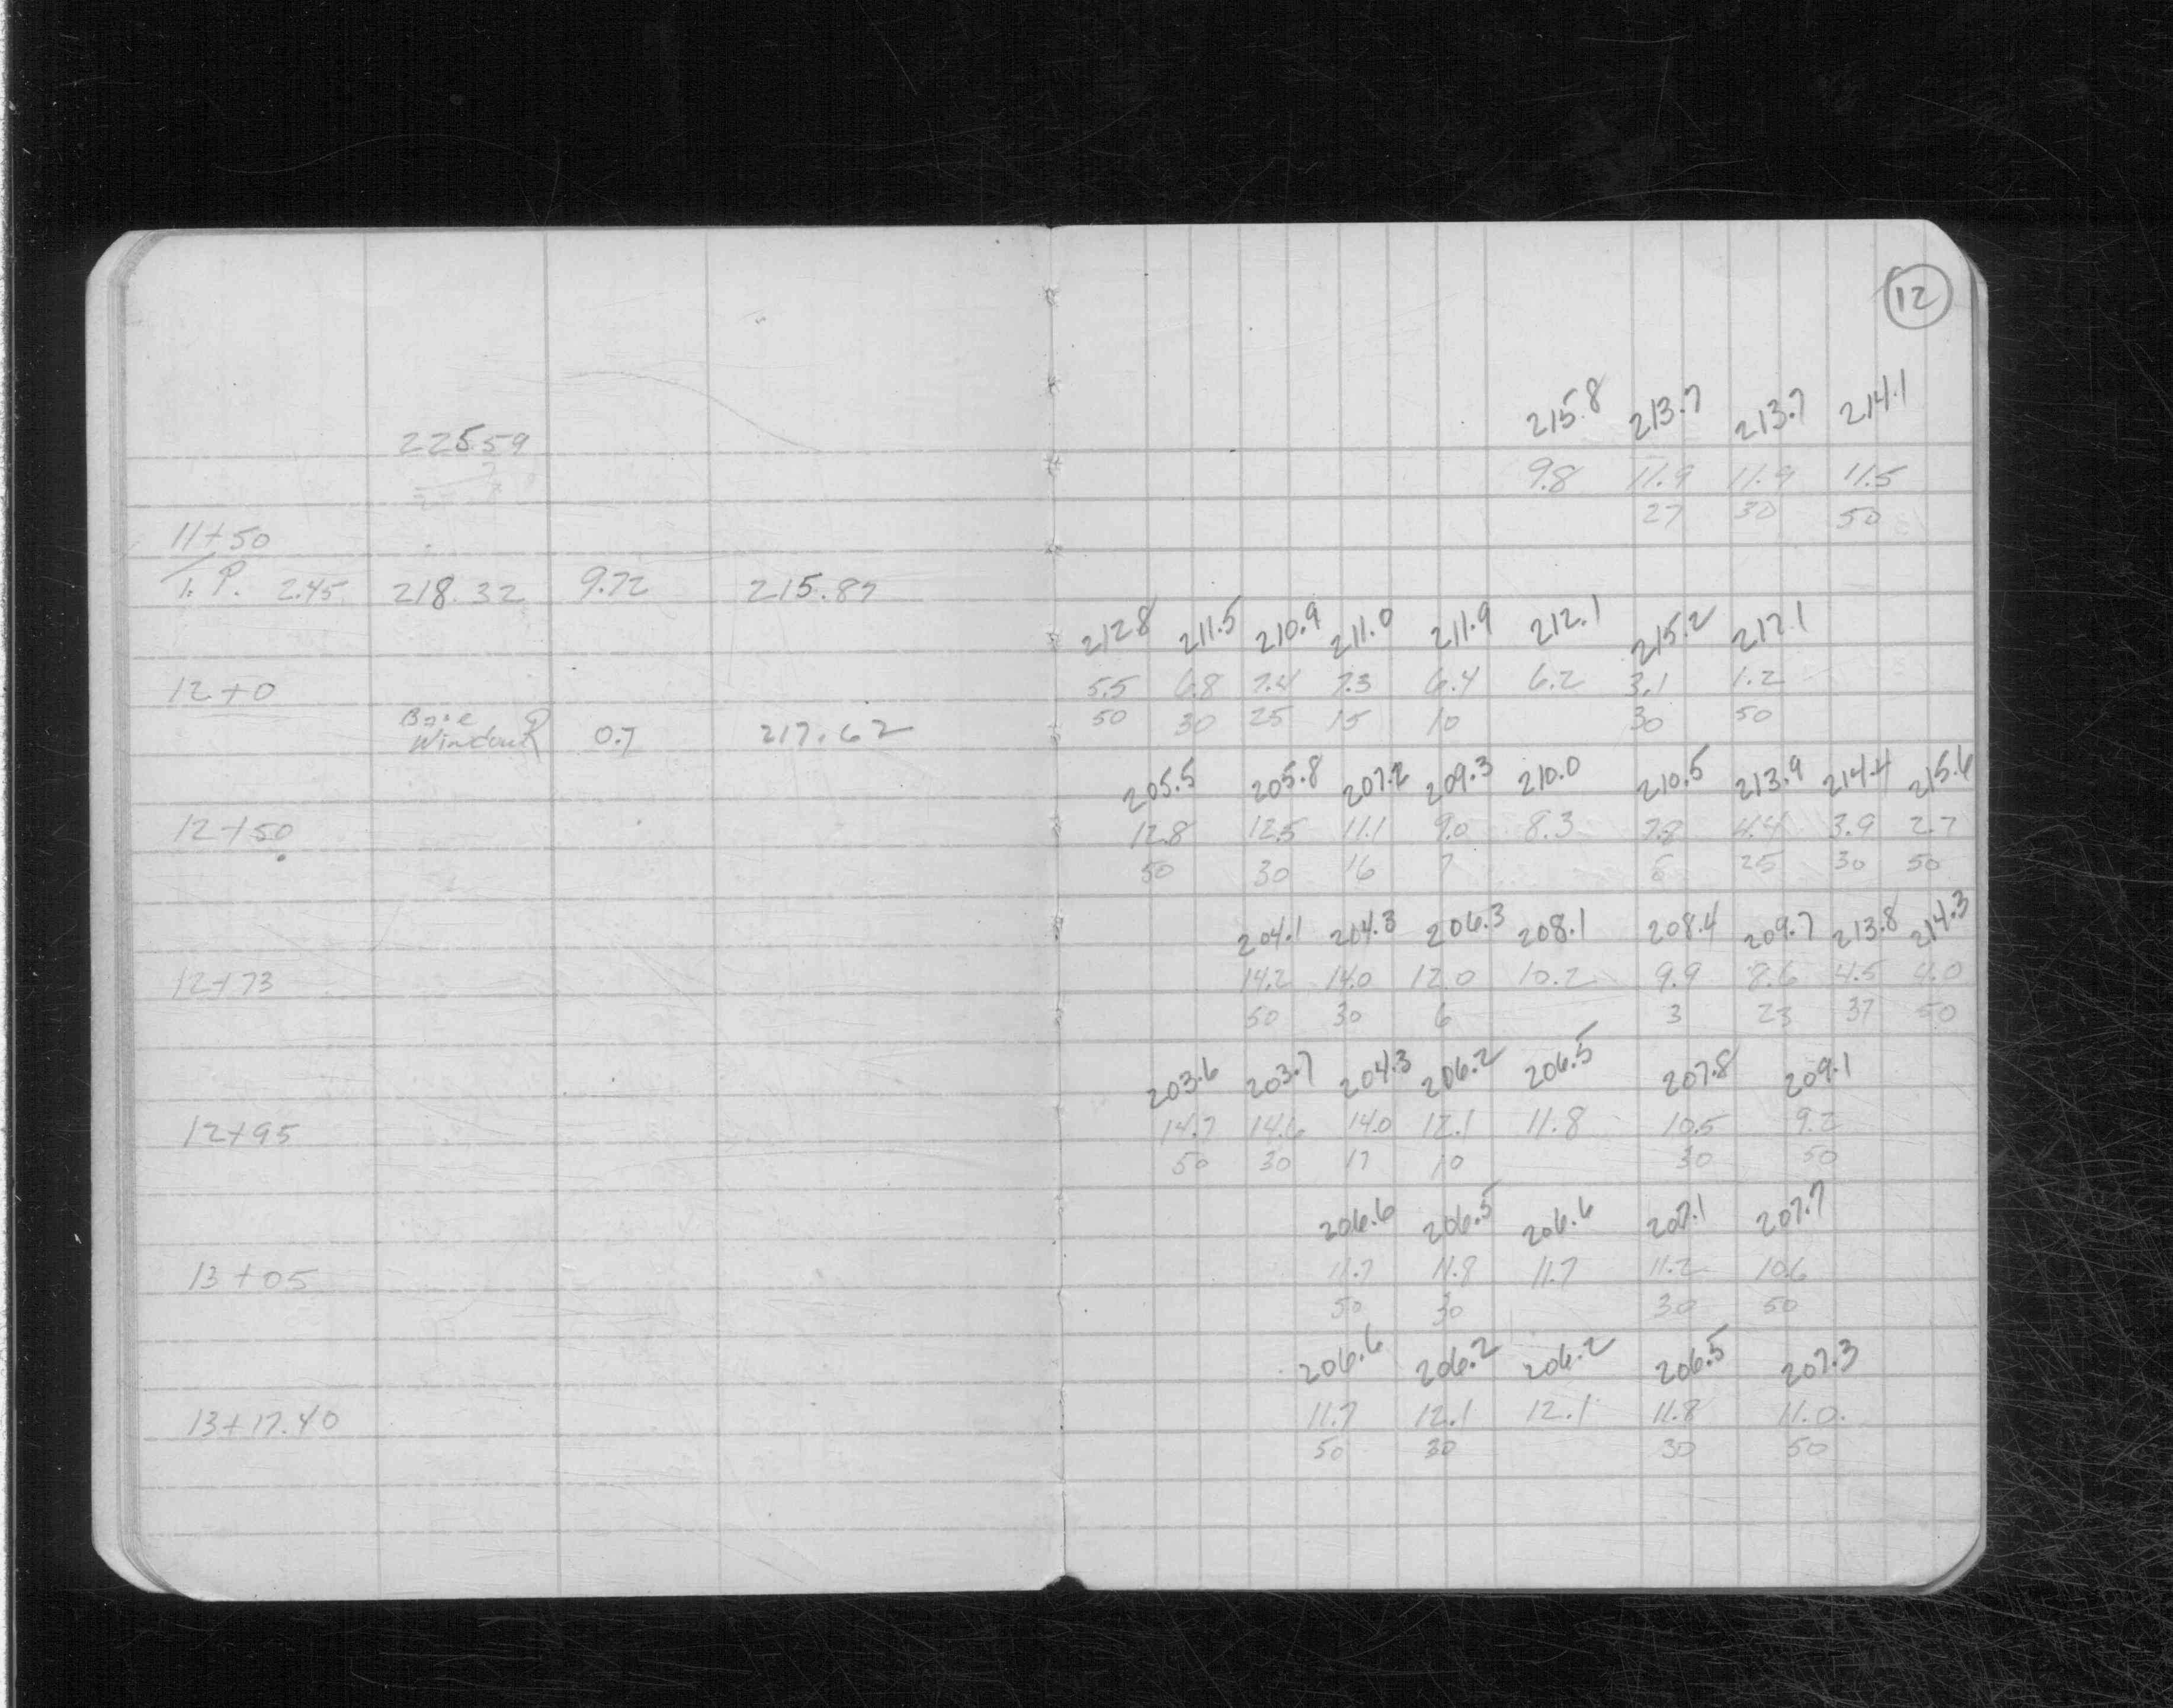 12
215.8 213.7 213.7 214.1
225.59
9.8 11.9 11.9 11.5
27 30 50
11+50
T.P. 2.45 218.32 9.72 215.87
212.8 211.5 210.9 211.0 211.9 212.1 215.2 217.1
12+0 5.5 6.8 7.4 7.3 6.4 6.2 3.1 1.2
50 30 25 15 10 30 50
Base
Window 0.7 217.62
205.5 205.8 207.2 209.3 210.0 210.5 213.9 214.4 215.6
12+50 12.8 12.5 11.1 9.0 8.3 7.8 4.4 3.9 2.7
50 30 16 7 25 30 50
204.1 204.3 206.3 208.1 208.4 209.7 213.8 214.3
12+73 14.2 14.0 12.0 10.2 9.9 8.6 4.5 4.0
50 30 6 3 23 37 50
203.6 203.7 204.3 206.2 206.5 207.8 209.1
12+95 14.7 14.6 14.0 12.1 11.8 10.5 9.2
50 30 17 10 30 50
206.6 206.5 206.6 207.1 207.7
13+05 11.7 11.8 11.7 11.2 10.6
50 30 30 50
206.6 206.2 206.2 206.5 207.3
13+17.40 11.7 12.1 12.1 11.8 11.0
50 30 30 50